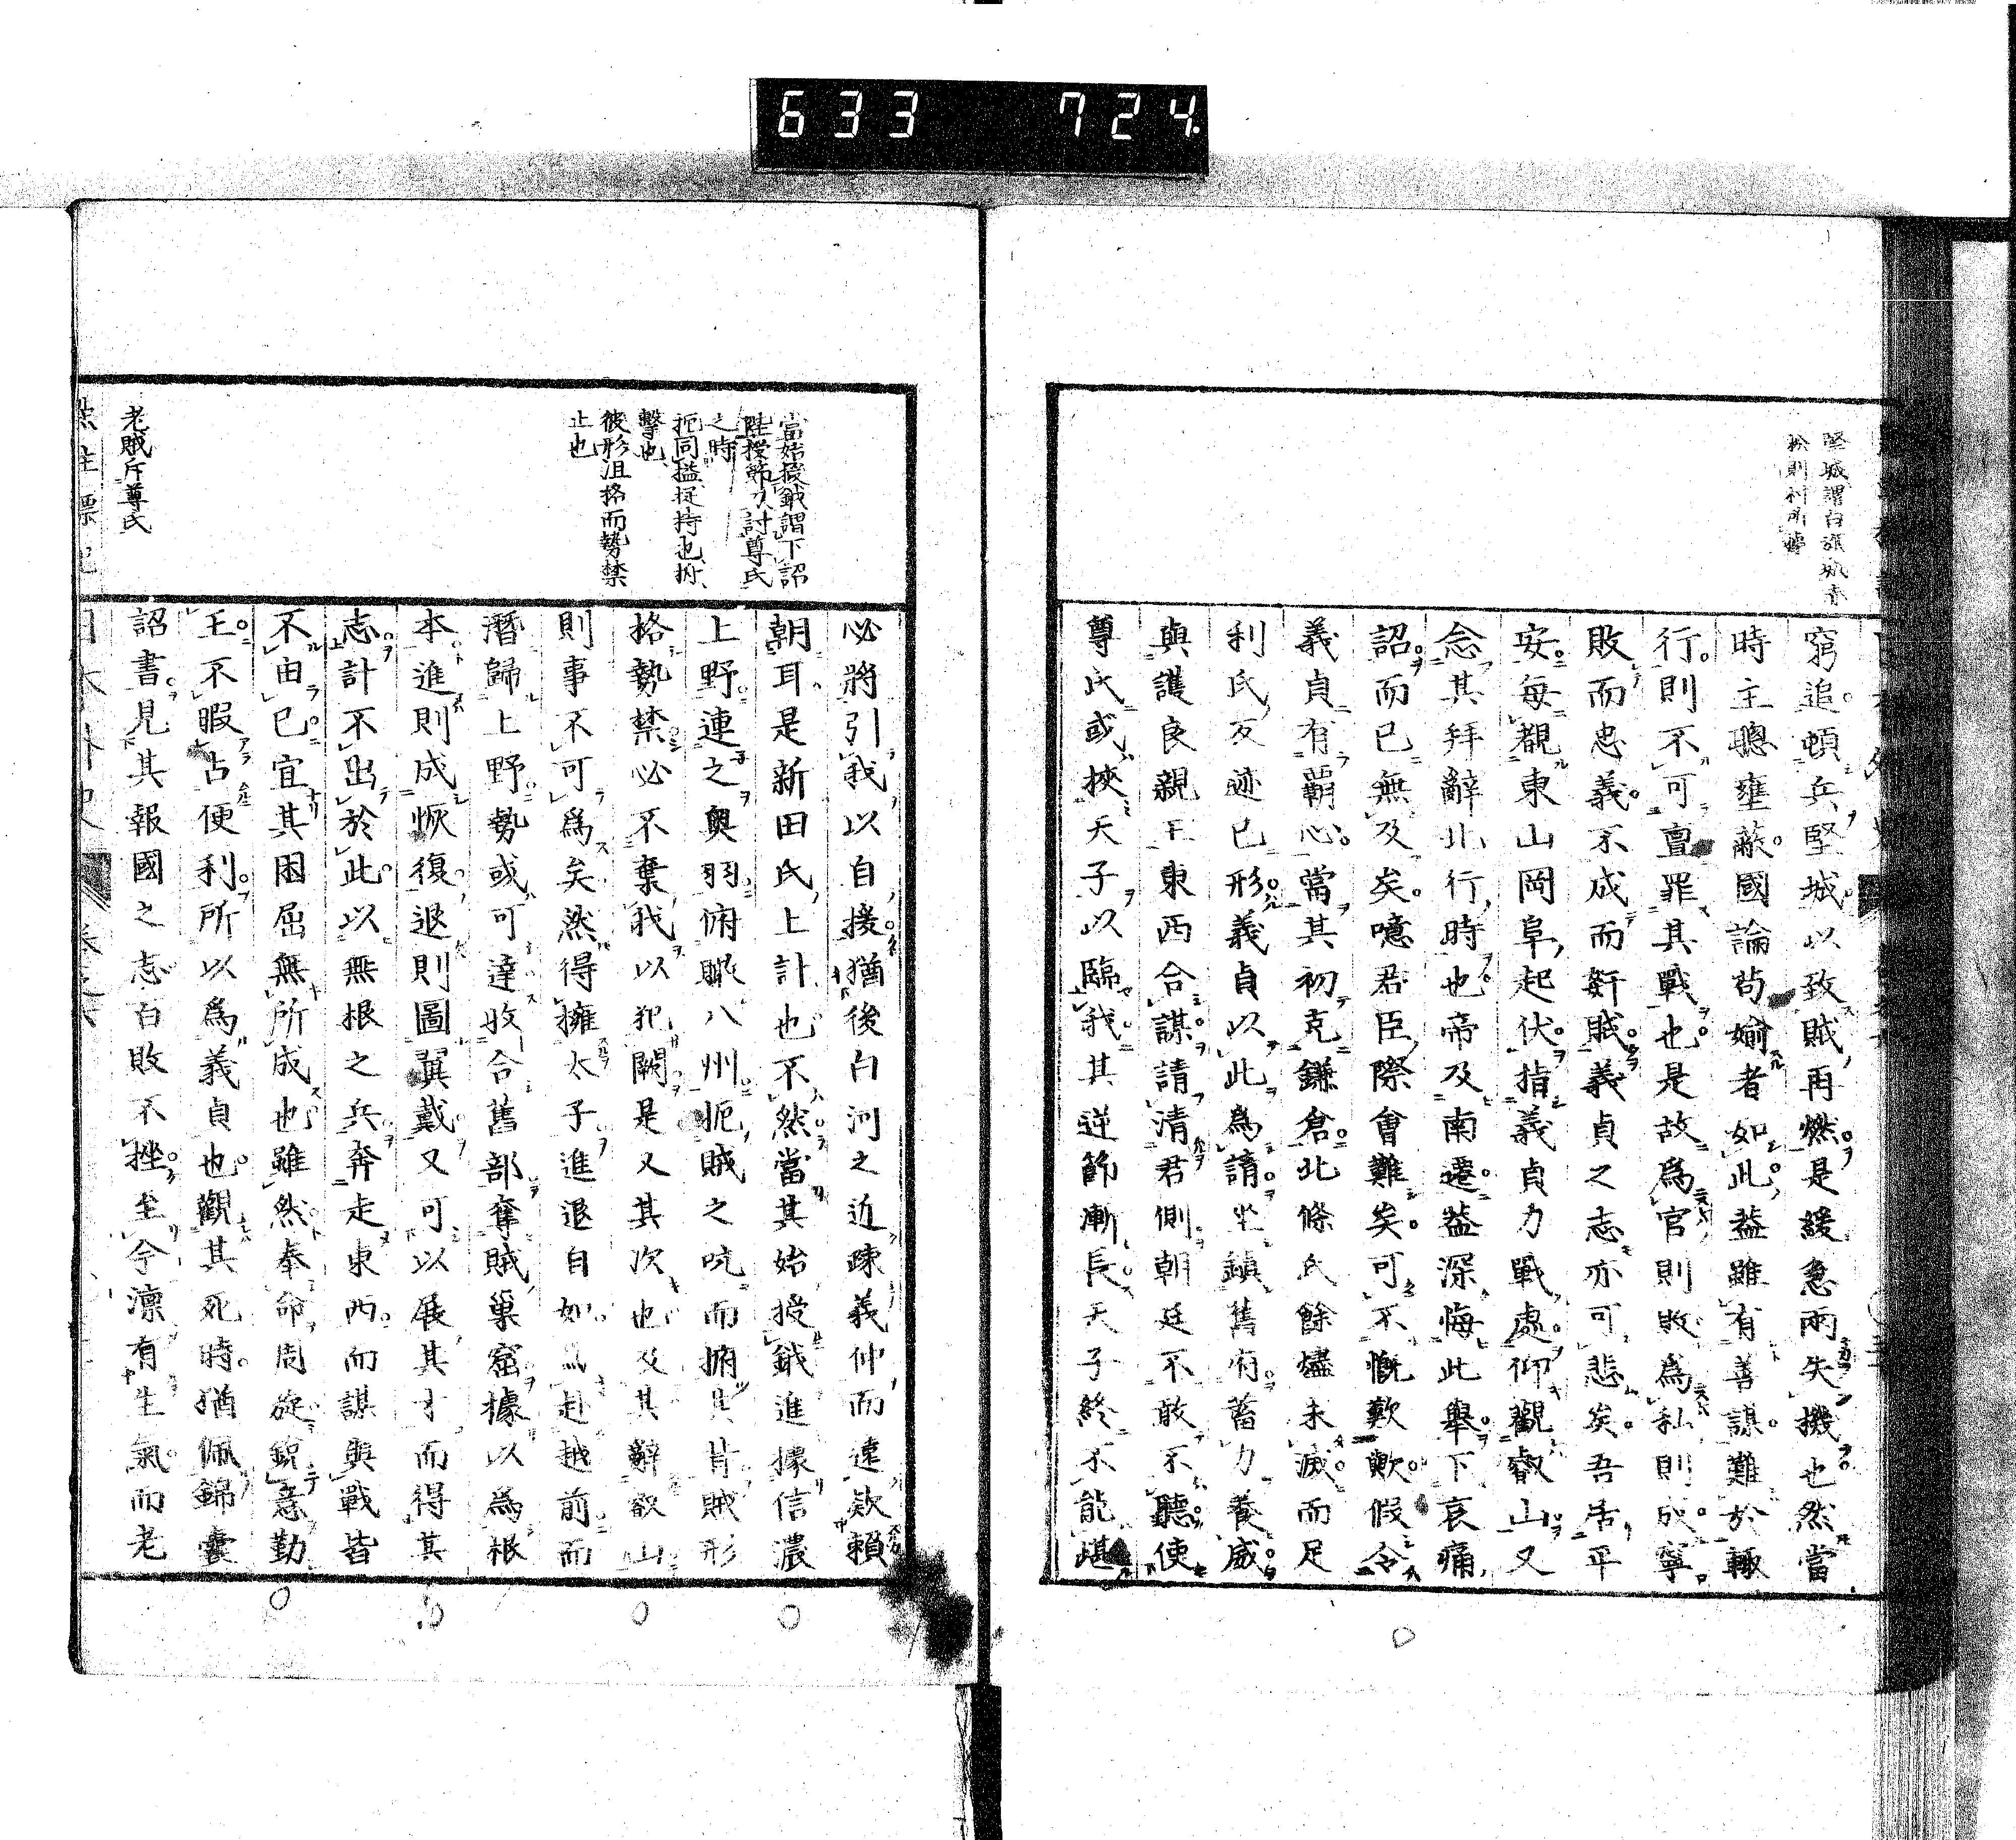 633 724
堅城謂白旗城赤
松則村所據
窮追頓兵堅城以致賊再燃是緩急兩失機也然當
時主聰壅蔽國論茍媮者如此葢雖有善謀難於輒
行則不可亶罪其戰也是故爲官則敗爲私則成寧
敗而忠義不成而奸賊義貞之志亦可悲矣吾居平
安每覩東山岡阜起伏指義貞力戰處仰觀叡山又
念其拜辭北行時也帝及南遷葢深悔此舉下哀痛
詔而已無及矣噫君臣際會難矣可不慨歎歟假令
義貞有覇心當其初克鎌倉北條氏餘燼未滅而足
利氏反迹已形義貞以此爲請坐鎭舊府蓄力養威
與護良親王東西合謀請清君側朝廷不敢不聽使
尊氏或挾天子以臨我其逆節漸長天子終不能堪
當始授鉞謂下詔
陛授節刀討尊氏
之時
扼同搤捉持也拊
擊也
彼形沮格而勢禁
止也
必將引我以自援猶後白河之近疎義仲而遠欵賴
朝耳是新田氏上計也不然當其始授鉞進據信濃
上野連之奧羽俯瞰八州扼賊之吭而拊其背賊形
格勢禁必不棄我以犯闕是又其次也及其辭叡山
則事不可爲矣然得擁太子進退自如與赴越前而
潛歸上野勢或可達收合舊部奪賊巢窟據以爲根
本進則成恢復退則圖翼戴又可以展其才而得其
志計不出於此以無根之兵奔走東西而謀與戰皆
不由已宜其困屈無所成也雖然奉命周旋銳意勤
王不暇占便利所以爲義貞也觀其死時猶佩錦囊
詔書見其報國之志百敗不挫至今凛有生氣而老
老賊斥尊氏